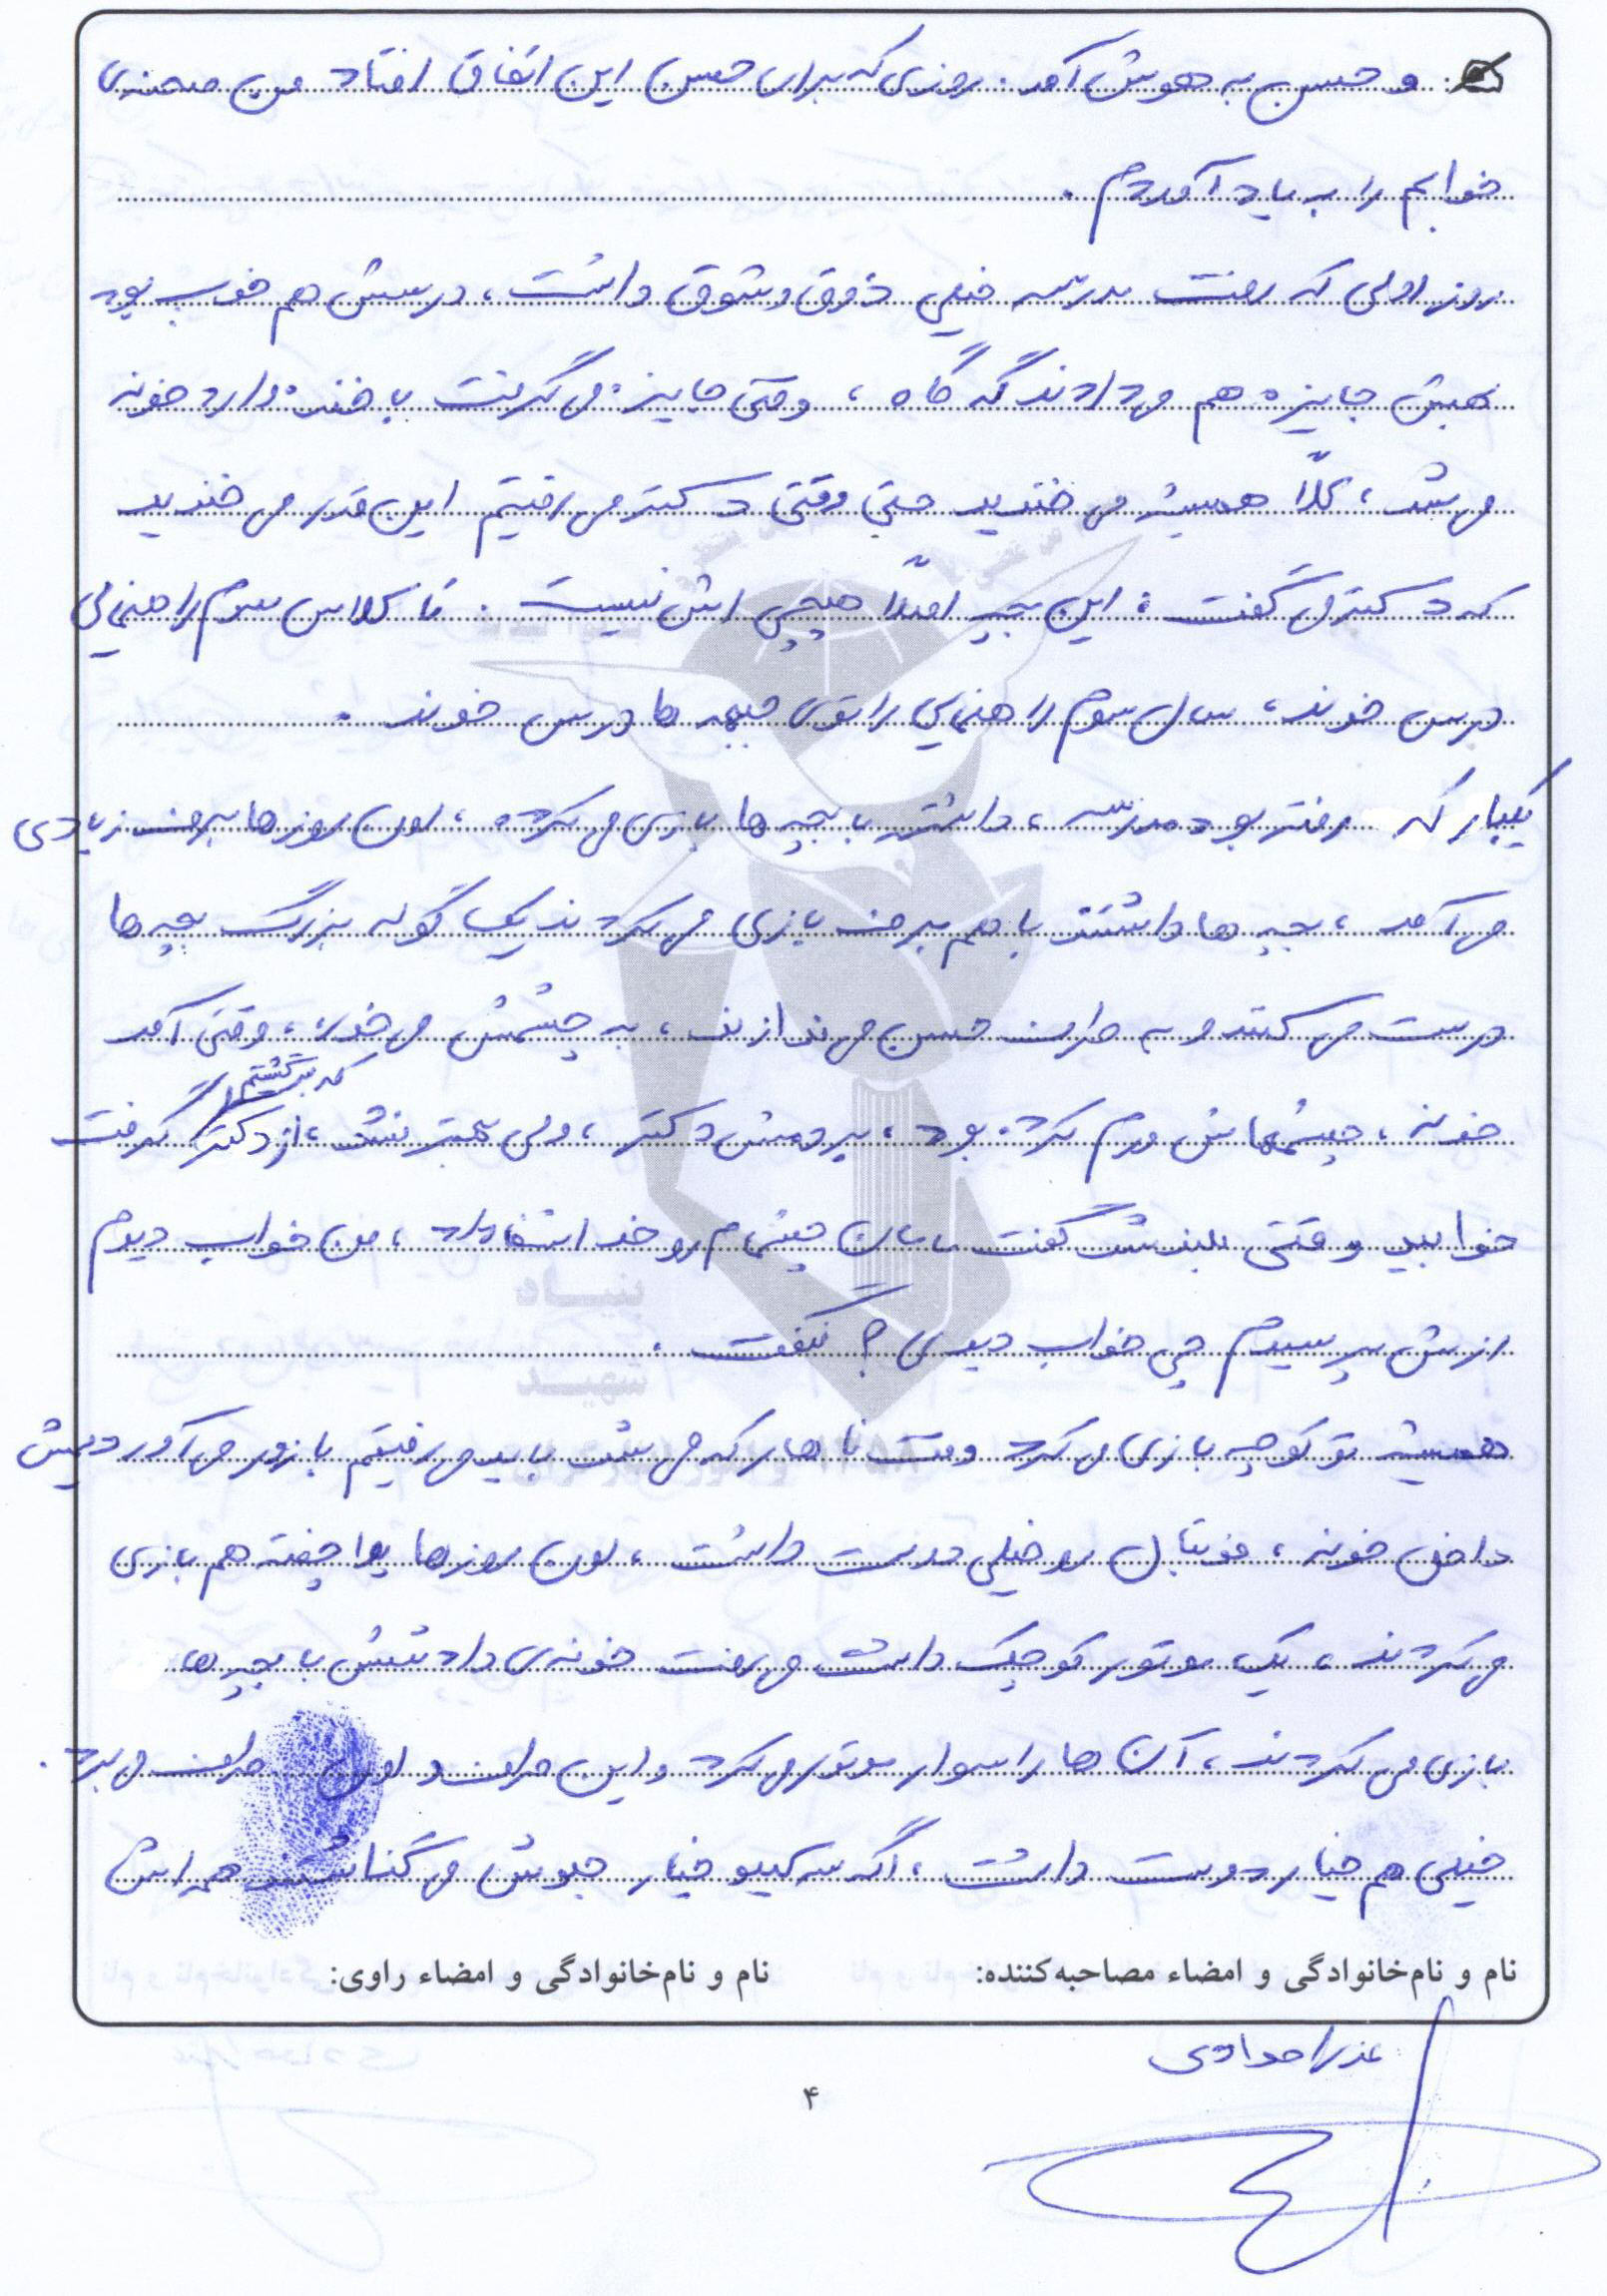 و حسن به هوش آمد. روزی که برای حسن این اتفاق افتاد من صحنه‌ی
خوابم را به یاد آوردم.
روز اولی که رفت مدرسه خیلی ذوق و شوق داشت، درسش هم خوب بود
بهش جایزه هم می‌دادند گه گاه، وقتی جایزه می‌گرفت با خنده وارد خونه
می‌شد، کلاً همیشه می‌خندید حتی وقتی دکتر می‌رفتیم این قدر می‌خندید
که دکتر می‌گفت: این بچه اصلاً هیچی اش نیست. تا کلاس سوم راهنمایی
درس خوند، سال سوم راهنمایی را توی جبهه ها درس خوند.
یکبار که رفته بود مدرسه، داشته با بچه ها بازی می‌کرده، اون روزها برف زیادی
می‌آمد، بچه ها داشتند با هم برف بازی می‌کردند یک گوله بزرگ بچه ها
درست می‌کنند و به طرف حسن می‌ندازند، به چشمش می‌خوره، وقتی آمد
که برگشتیم
خونه، چشمهاش ورم کرده بود، بردمش دکتر، ولی بهتر نشد، از دکتر گرفت
خوابید وقتی بلند شد گفت مامان چشمام رو خدا شفا داد، من خواب دیدم
ازش پرسیدم چی خواب دیدی؟ نگفت.
همیشه تو کوچه بازی می‌کرد وقت ناهار که می‌شد باید می‌رفتیم با زور می‌آوردیمش
داخل خونه، فوتبال رو خیلی دوست داشت، اون روزها یوا چفته هم بازی
می‌کردند، یک موتور کوچیک داشت می‌رفت خونه‌ی داداشش با بچه ها
بازی می‌کردند، آن ها را سوار موتور می‌کرد و این طرف و اون طرف می‌برد.
خیلی هم خیار دوست داشت، اگه سه کیلو خیار جلوش می‌گذاشتند همه اش
نام و نام‌خانوادگی و امضاء مصاحبه‌کننده: نام و نام‌خانوادگی و امضاء راوی:
عذرا حدادی
۴